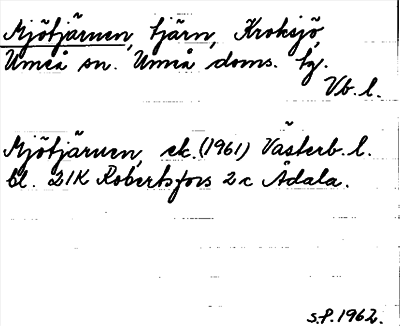 Mjötjärnen, tjärn, Kroksjö,
Umeå sn. Umeå doms. tg.
Vb. l.
Mjötjärnen, ek. (1961) Västerb. l.
bl. 21K Robertsfors 2c Ådala.
S.P. 1962.